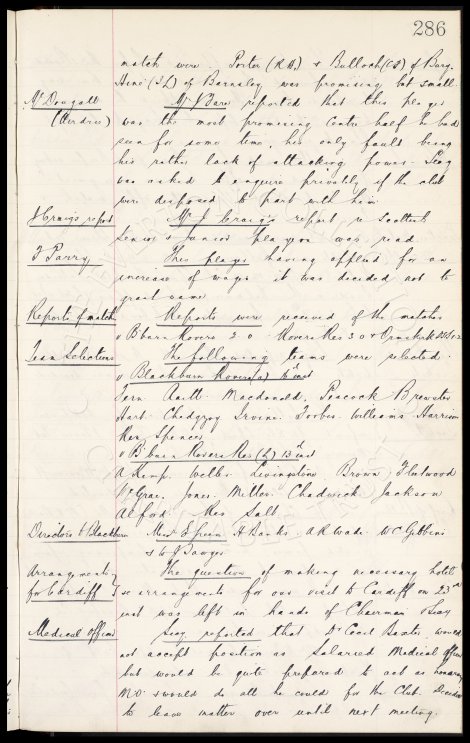 286
match were Porter (R.H.) & Bulloch (C.F.) of Bury.
Hine (I.L.) of Barnsley was promising but small.
McDougall
(Airdrie)
Mr J Bare reported that this player
was the most promising centre half he had
seen for some time, his only fault being
his rather lack of attacking power. Secy
was asked to enquire privately if the club
were disposed to part with him.
J Craig's report
Mr J Craig's report re Scottish
Senior & Junior players was read.
J Parry
This player having applied for an
increase of wage it was decided not to
grant same
Reports of match
Reports were received of the matches
v B'burn Rovers 2 0 Rovers Res 3 0 & Ormskirk
Team Selections
The following teams were selected.
v Blackburn Rovers
Fern Raitt. Macdonald, Peacock Brewster
Hart. Chedgzoy Irvine. Forbes. Williams Harrison
Res Spencer
v B'burn Rovers Res (L) 13th inst
A Kemp. Weller Livingstone Brown Fleetwood
McGrae, Jones. Miller. Chadwick Jackson
Alford. Res Salt.
Directors to Blackburn
Messrs E Green H Banks. A R Wade. W C Gibbins
& W J Sawyer
Arrangements
for Cardiff
The question of making necessary hotel
&c arrangements for our visit to Cardiff on 23rd
inst was left in hands of Chairman & Secy
Medical Officer
Secy reported that Dr Cecil Baxter would
not accept position as Salaried Medical Officer
but would be quite prepared to act as honorary
M.O. & would do all he could for the Club. Decided
to leave matter over until next meeting.